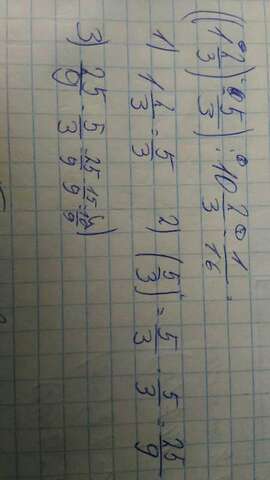 ((1 2/3)² - 5/3) : 10 2/3 - 1/16 =
1) 1 2/3 = 5/3 2) (5/3)² = 5/3 · 5/3 = 25/9
3) 25/9 - 5/3 = 25/9 - 15/9 = 10/9)